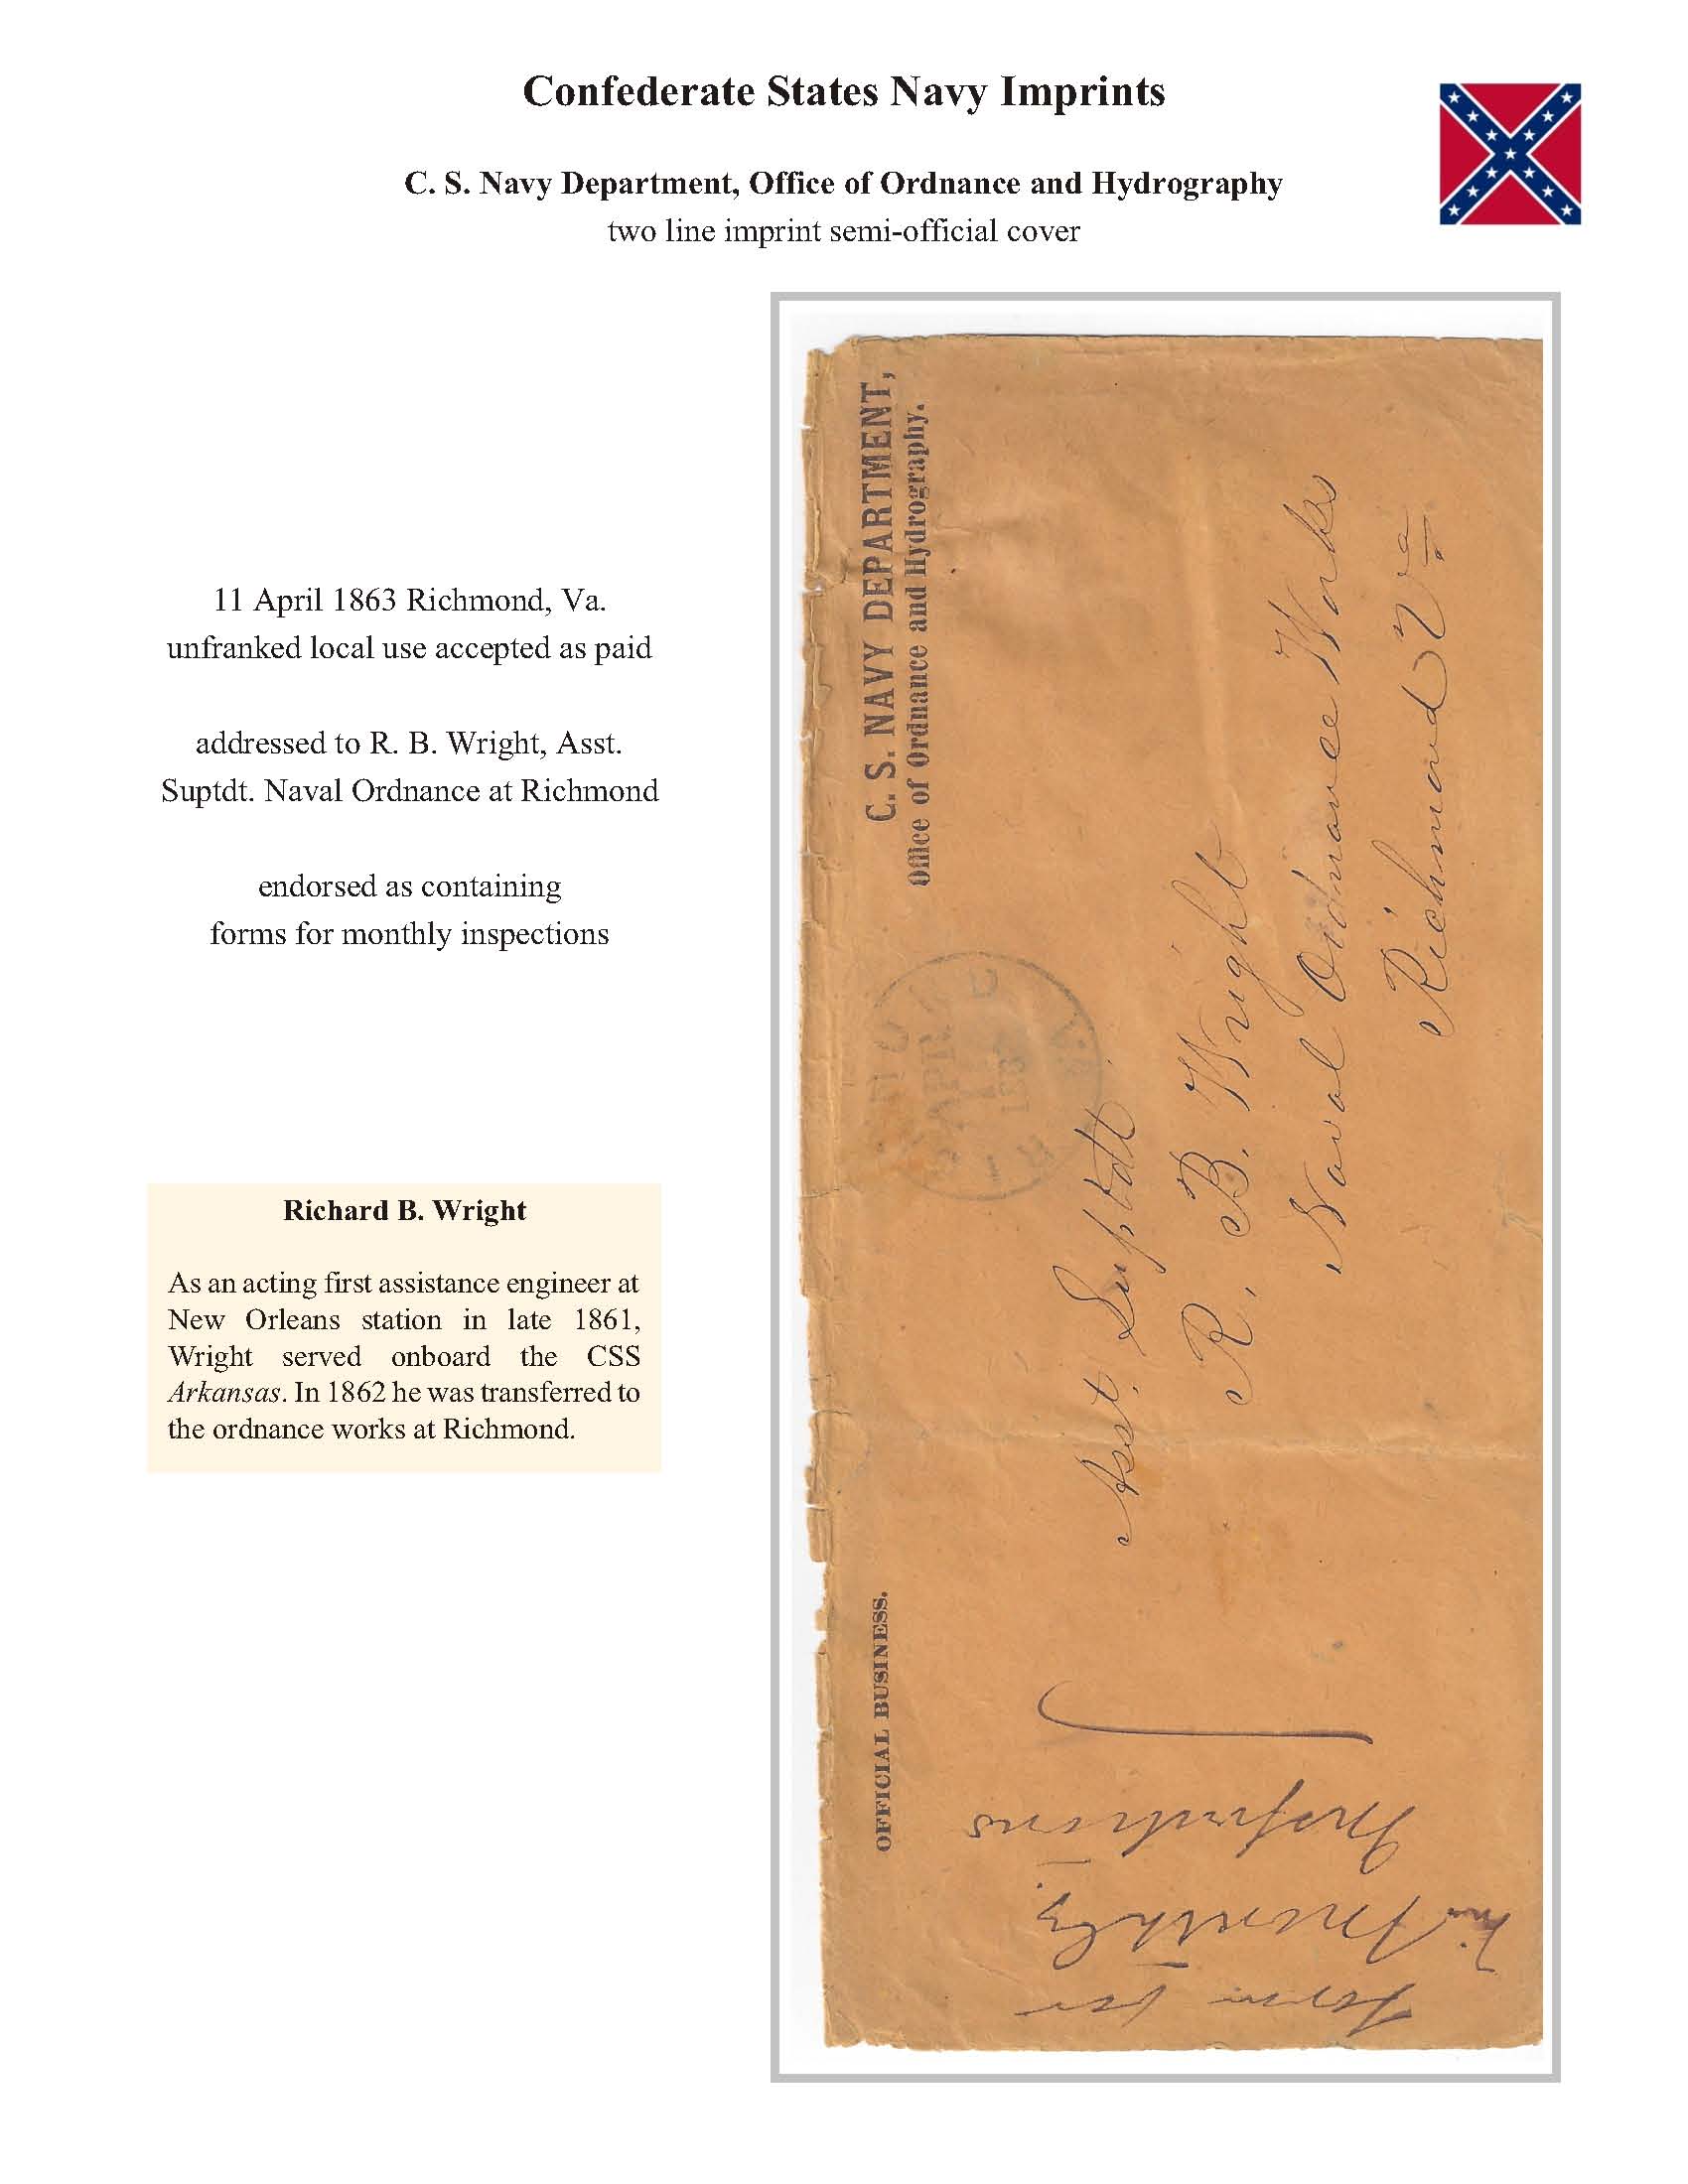 Confederate States Navy Imprints
C. S. Navy Department, Office of Ordnance and Hydrography
two line imprint semi-official cover
11 April 1863 Richmond, Va.
unfranked local use accepted as paid
addressed to R. B. Wright, Asst.
Suptdt. Naval Ordnance at Richmond
endorsed as containing
forms for monthly inspections
Richard B. Wright
As an acting first assistance engineer at
New Orleans station in late 1861,
Wright served onboard the CSS
Arkansas. In 1862 he was transferred to
the ordnance works at Richmond.
C. S. NAVY DEPARTMENT,
Office of Ordnance and Hydrography.
OFFICIAL BUSINESS.
Asst. Suptdt
R. B. Wright
Naval Ordnance Works
Richmond Va
Form for
Monthly
Inspections